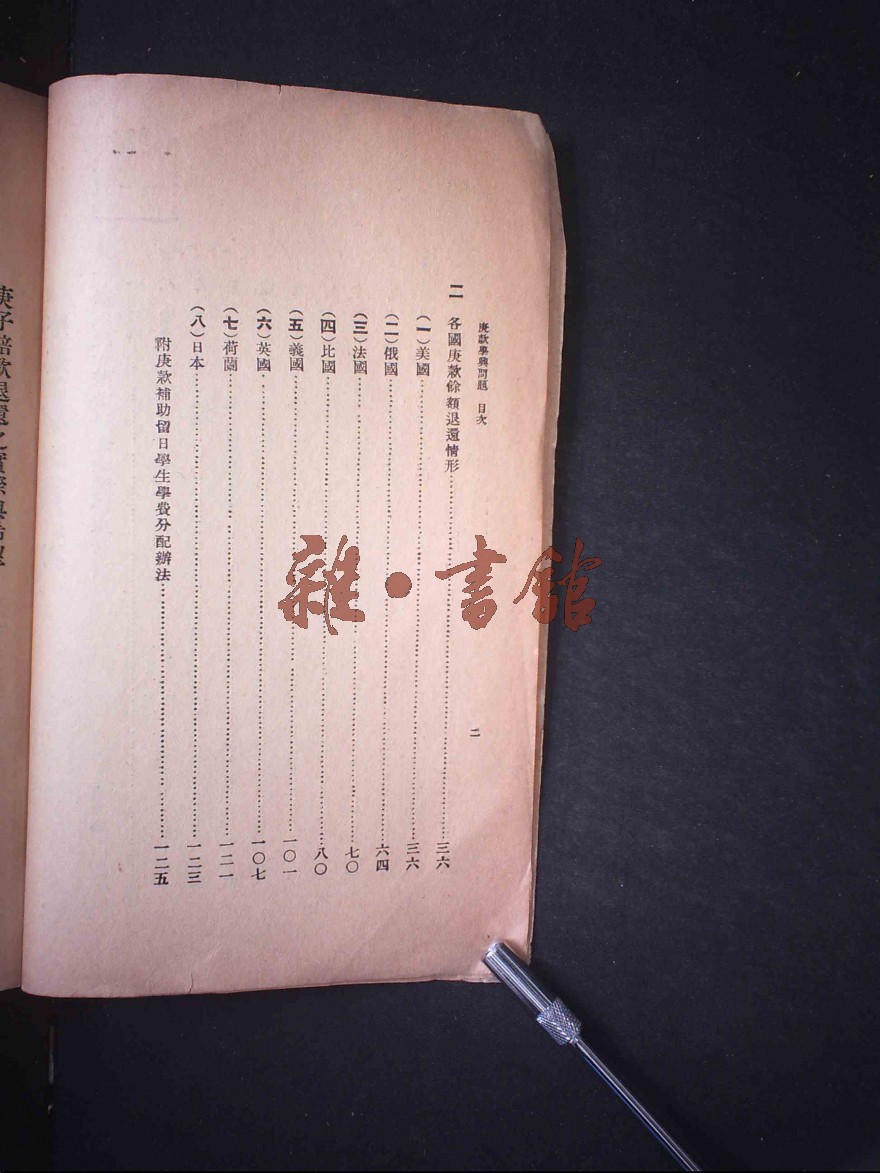 庚款興學問題　目次
二
二　各國庚款餘額退還情形…………三六
（一）美國…………三六
（二）俄國…………六四
（三）法國…………七〇
（四）比國…………八〇
（五）義國…………一〇一
（六）英國…………一〇七
（七）荷蘭…………一二一
（八）日本…………一二三
附庚款補助留日學生學費分配辦法…………一二五
庚子賠款退還之實際與希望
雜・書館